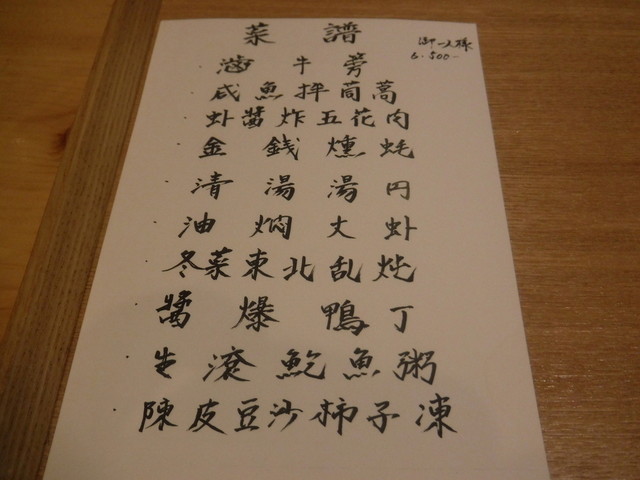 菜譜
御一人様
6.500-
・滷牛蒡
・咸魚拌茼蒿
・虾醤炸五花肉
・金銭燻蚝
・清湯湯円
・油焖丈虾
・冬菜東北乱炖
・醤爆鴨丁
・生滾鮑魚粥
・陳皮豆沙柿子凍